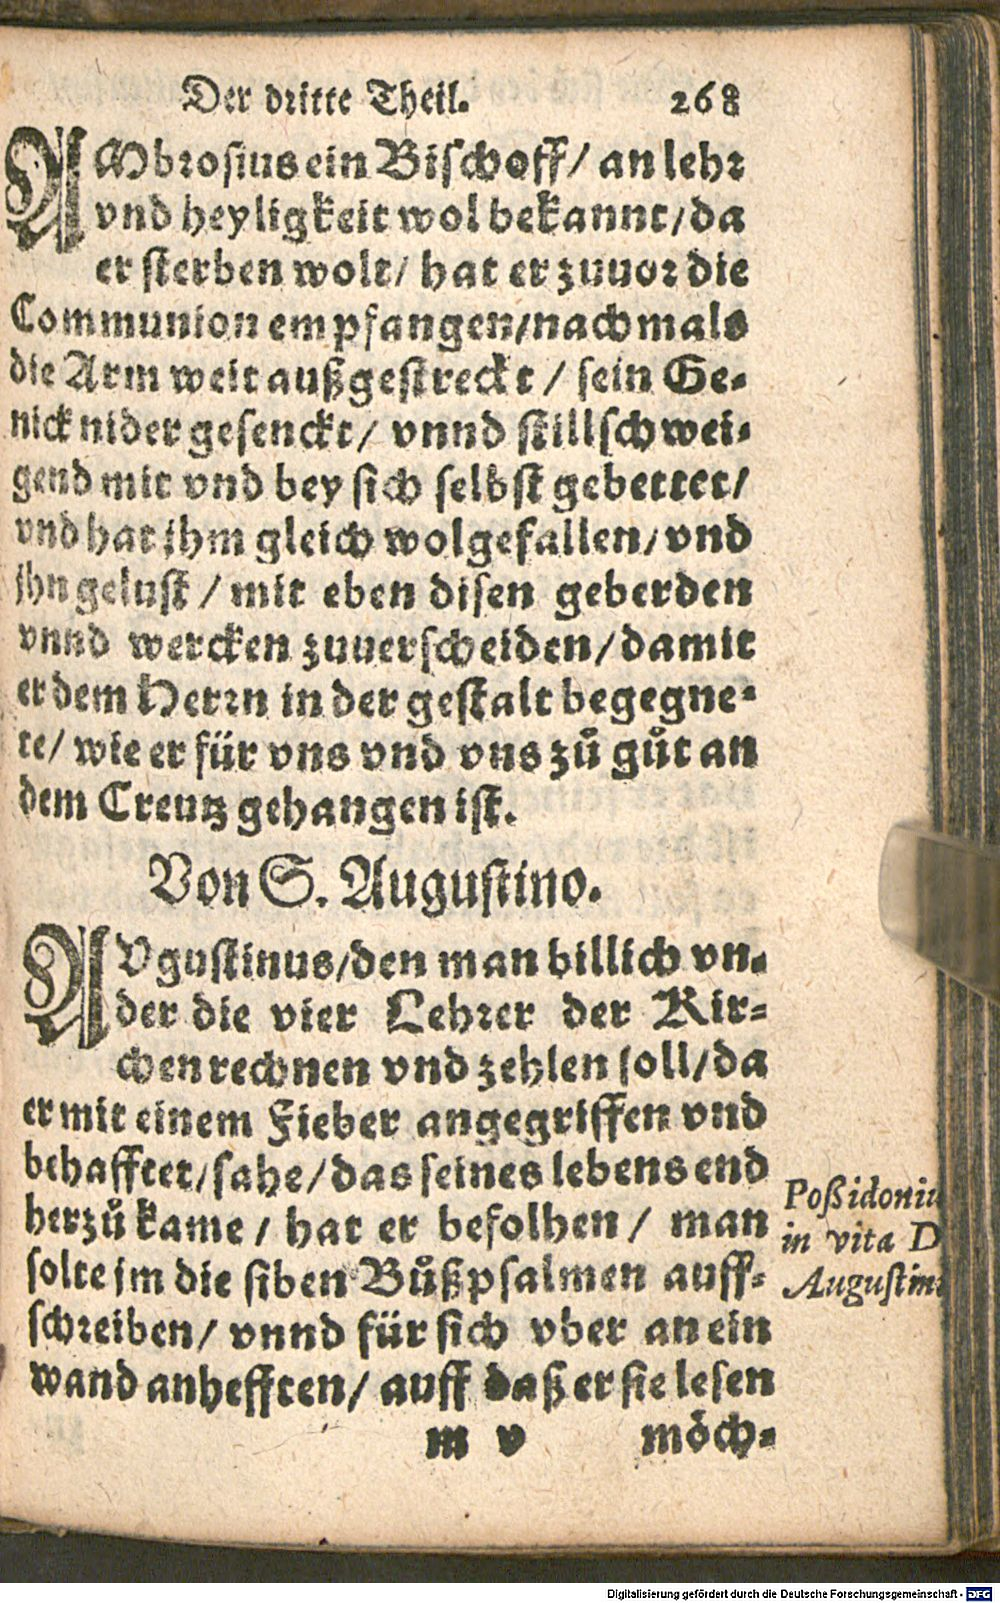 Der dritte Theil. 268
AMbrosius ein Bischoff/ an lehr
vnd heyligkeit wol bekannt/ da
er sterben wolt/ hat er zuuor die
Communion empfangen/ nachmals
die Arm weit außgestreckt / sein Ge-
nick nider gesenckt/ vnnd stillschwei-
gend mit vnd bey sich selbst gebettet/
vnd hat jhm gleich wolgefallen/ vnd
jhn gelust / mit eben disen geberden
vnnd wercken zuuerscheiden/ damit
er dem Herrn in der gestalt begegne-
te/ wie er für vns vnd vns zů gůt an
dem Creutz gehangen ist.
Von S. Augustino.
AVgustinus/ den man billich vn-
der die vier Lehrer der Kir-
chen rechnen vnd zehlen soll/ da
er mit einem Fieber angegriffen vnd
behafftet/ sahe/ das seines lebens end
herzů kame / hat er befolhen / man
solte jm die siben Bůßpsalmen auff-
schreiben/ vnnd für sich vber an ein
wand anhefften/ auff daß er sie lesen
m v möch-
Poßidoniu
in vita D
Augustini
Digitalisierung gefördert durch die Deutsche Forschungsgemeinschaft - DFG